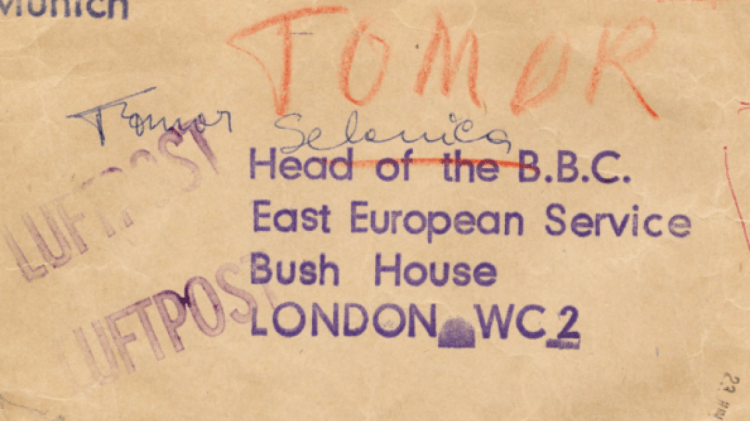 Munich
TOMOR
Tomor Selenica
LUFTPOST
Head of the B.B.C.
East European Service
Bush House
LUFTPOST
LONDON WC2